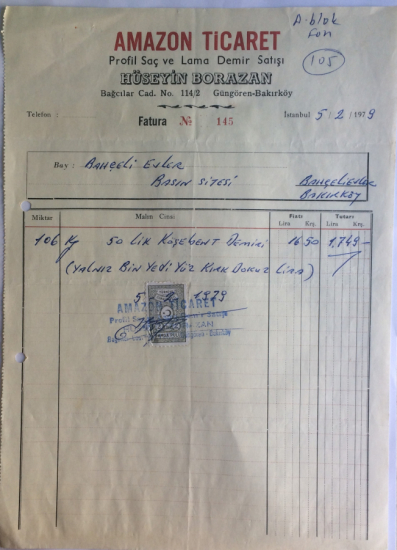 A-blok
105
AMAZON TİCARET
Profil Saç ve Lama Demir Satışı
HÜSEYİN BORAZAN
Bağcılar Cad. No. 114/2 Güngören-Bakırköy
Telefon :
Fatura № 145
İstanbul 5/2/1979
Bay : BAHÇELİ EVLER
BASIN SİTESİ
BAHÇELİEVLER
BAKIRKÖY
Miktar Malın Cinsi Fiatı Tutarı
Lira Krş. Lira Krş.
106 Kg 50 LİK KÖŞEBENT DEMİRİ 16.50 1.749-
(YALNIZ BİN YEDİ YÜZ KIRK DOKUZ LİRA)
5 2 1979
AMAZON TİCARET
Profil